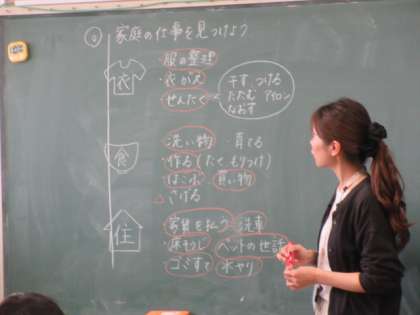 家庭の仕事を見つけよう
衣
服の整理
・衣がえ
・せんたく
干す、つける
たたむ アイロン
なおす
食
・洗い物 ・育てる
・作る(たく、もりつけ)
・はこぶ 買い物
△さげる
住
家賃を払う 洗車
・床そうじ ペットの世話
ゴミすて 水やり